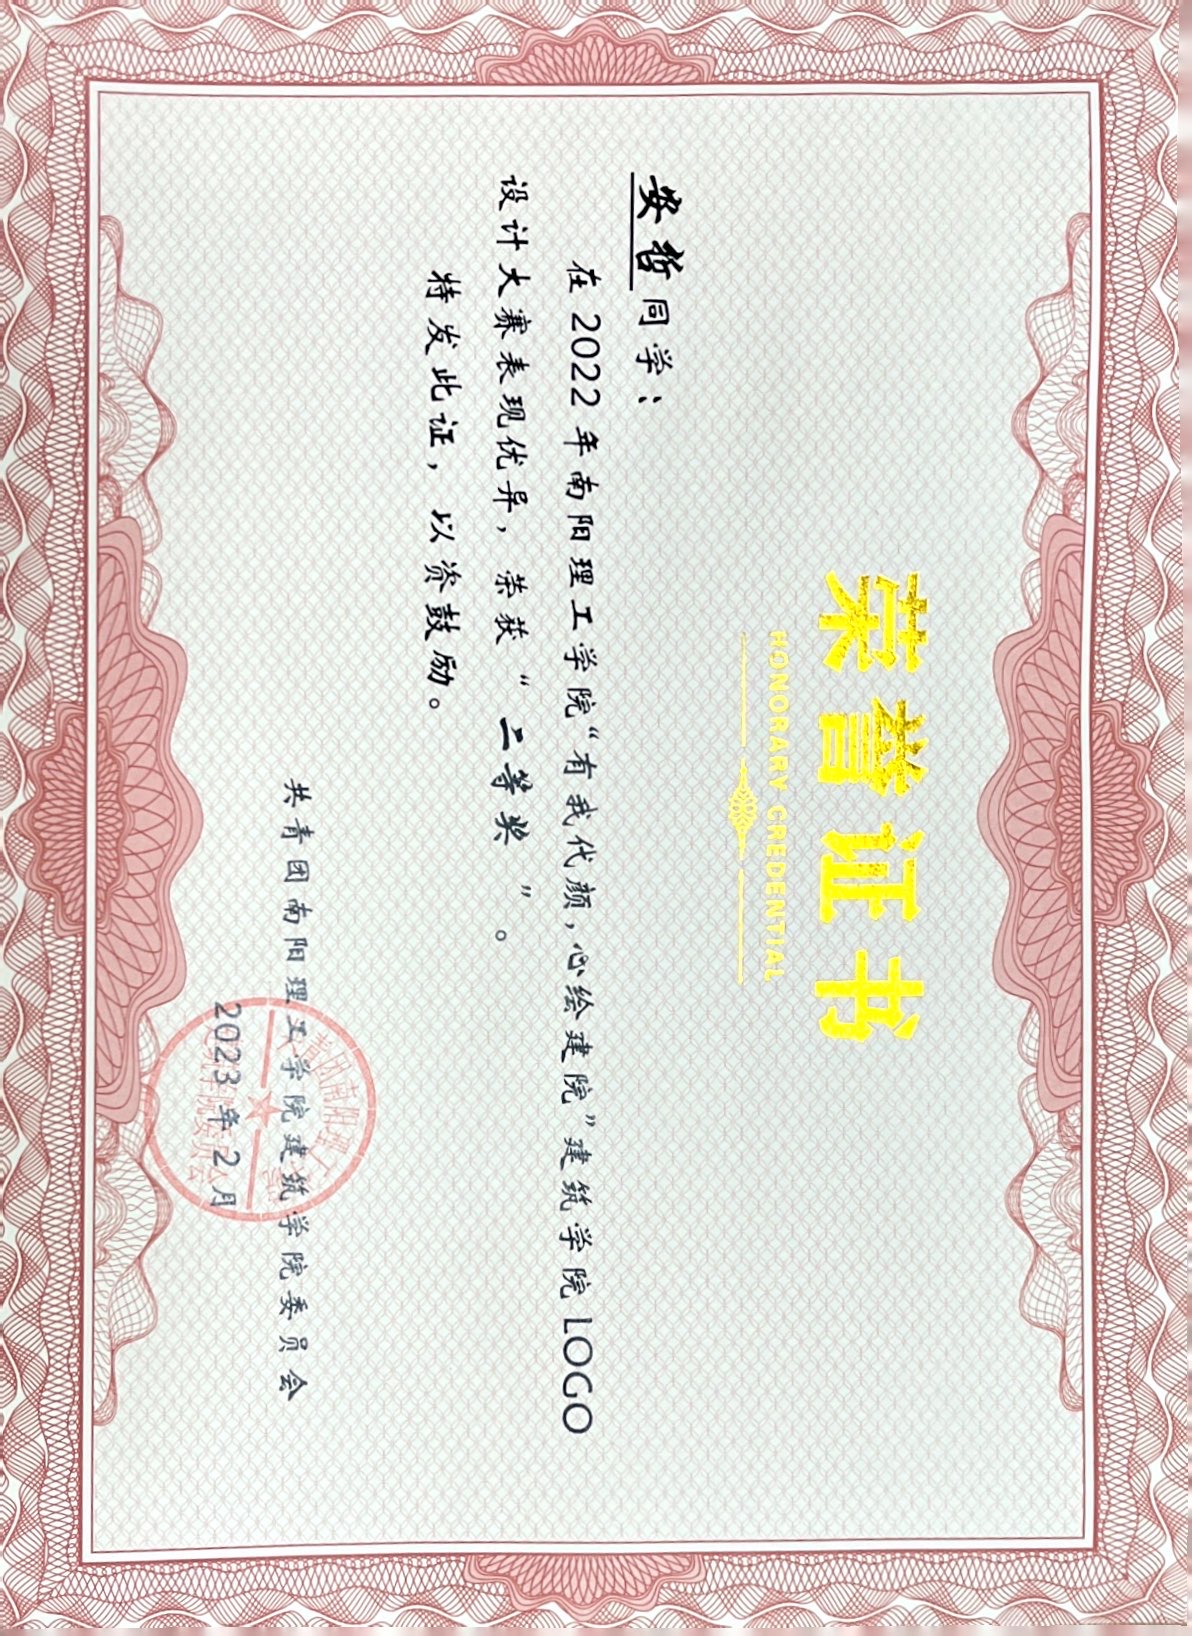 荣誉证书
HONORARY CREDENTIAL
安哲同学：
在2022年南阳理工学院“有我代颜，心绘建院”建筑学院LOGO
设计大赛表现优异，荣获“二等奖”。
特发此证，以资鼓励。
共青团南阳理工学院建筑学院委员会
2023年2月